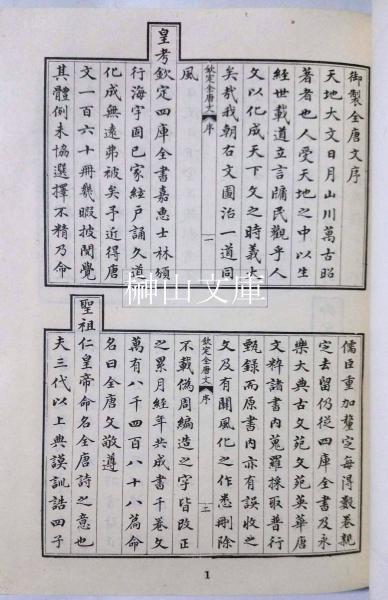 御製全唐文序
天地大文日月山川萬古昭
著者也人受天地之中以生
經世載道立言牖民觀乎人
文以化成天下文之時義大
矣哉我朝右文圖治一道同
風
欽定全唐文 序 一
皇考欽定四庫全書嘉惠士林頒
行海宇固已家絃戶誦久道
化成無遠弗被矣予近得唐
文一百六十冊幾暇披閱覺
其體例未協選擇不精乃命
儒臣重加釐定每得數卷親
定去留仍從四庫全書及永
樂大典古文苑文苑英華唐
文粹諸書內蒐羅採取普行
甄錄而原書內亦有誤收之
文及有關風化之作悉刪除
欽定全唐文 序 二
不載偽周編造之字皆改正
之累月經年共成書千卷文
萬有八千四百八十八篇命
名曰全唐文敬遵
聖祖仁皇帝命名全唐詩之意也
夫三代以上典謨訓誥四子
榊山文庫
1